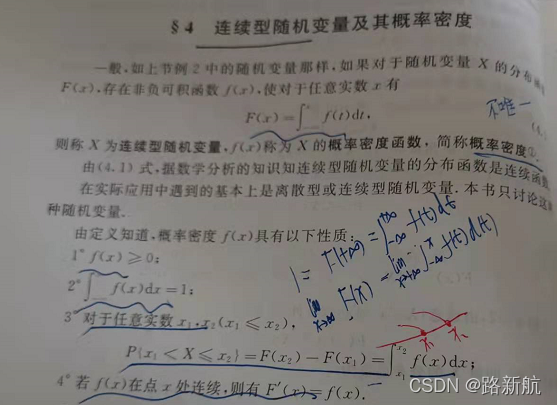 §4 连续型随机变量及其概率密度
一般,如上节例2中的随机变量那样,如果对于随机变量X的分布函
F(x),存在非负可积函数f(x),使对于任意实数x有
不唯一
F(x)=∫f(t)dt,
则称X为连续型随机变量,f(x)称为X的概率密度函数,简称概率密度①.
由(4.1)式,据数学分析的知识知连续型随机变量的分布函数是连续函
在实际应用中遇到的基本上是离散型或连续型随机变量.本书只讨论这
种随机变量.
由定义知道,概率密度f(x)具有以下性质:
1°f(x)≥0;
1=F(+∞)=∫_{-∞}^{+∞}f(t)dt
2°∫f(x)dx=1;
lim_{x→+∞}F(x)=lim_{x→+∞}∫_{-∞}^{x}f(t)d(t)
3°对于任意实数x₁,x₂(x₁≤x₂),
x₁ x₂
P{x₁<X≤x₂}=F(x₂)-F(x₁)=∫_{x₁}^{x₂}f(x)dx;
4°若f(x)在点x处连续,则有F′(x)=f(x).
CSDN @路新航